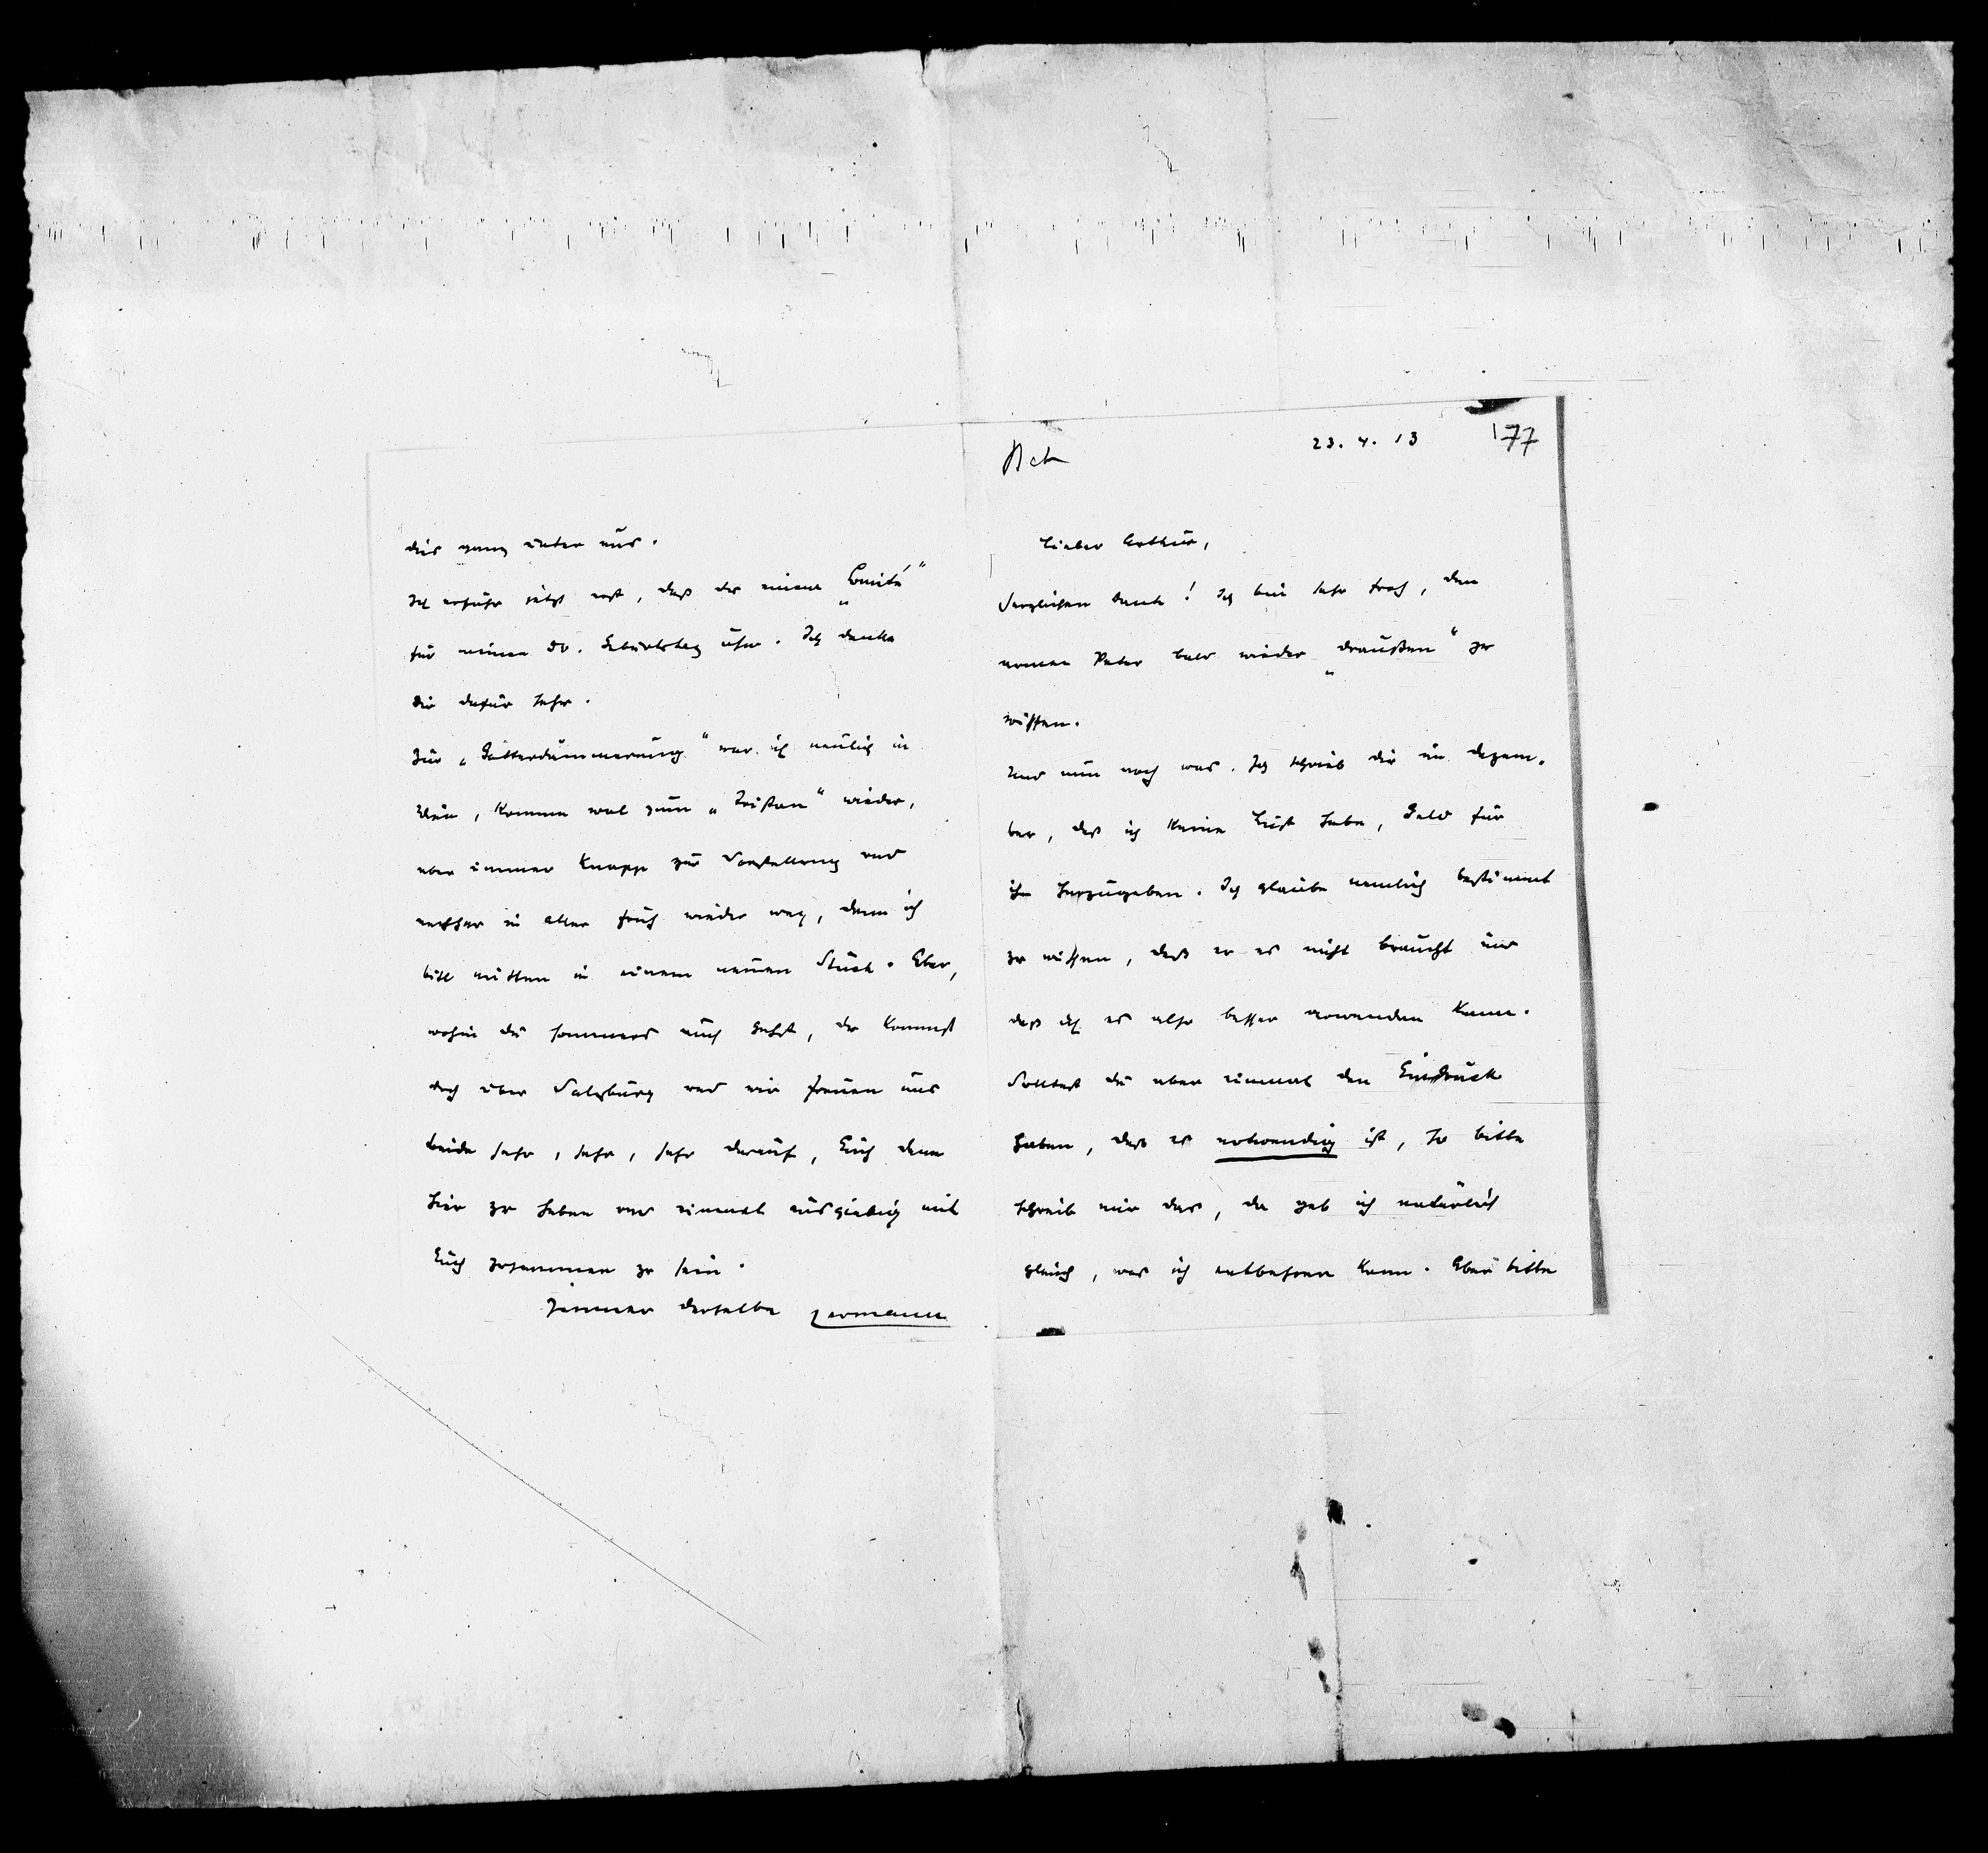 23. 4. 13
177
Lieber Arthur,
Herzlichen Dank! Ich bin sehr froh, den
armen Peter bald wieder „draußen“ zu
wissen.
Und nun noch was. Ich schrieb dir im Dezem-
ber, daß ich keine Lust habe, Geld für
ihn herzugeben. Ich glaube nemlich bestimmt
zu wissen, daß er es nicht braucht und
daß ich es also besser verwenden kann.
Solltest du aber einmal den Eindruck
haben, daß es notwendig ist, so bitte
schreib mir das, da geb ich natürlich
gleich, was ich entbehren kann. Aber bitte
dies ganz unter uns.
Ich erfuhr jetzt erst, daß du einem „Comité“
für meinen 50. Geburtstag usw. Ich danke
dir dafür sehr.
Zur „Götterdämmerung“ war ich neulich in
Wien, komme wol zum „Tristan“ wieder,
aber immer knapp zur Vorstellung und
nachher in aller Früh wieder weg, denn ich
bin mitten in einem neuen Stück. Aber,
wohin du sommers auch gehst, du kommst
doch über Salzburg und wir freuen uns
beide sehr, sehr, sehr darauf, Euch dann
hier zu haben und einmal ausgiebig mit
Euch zusammen zu sein.
Immer derselbe Hermann